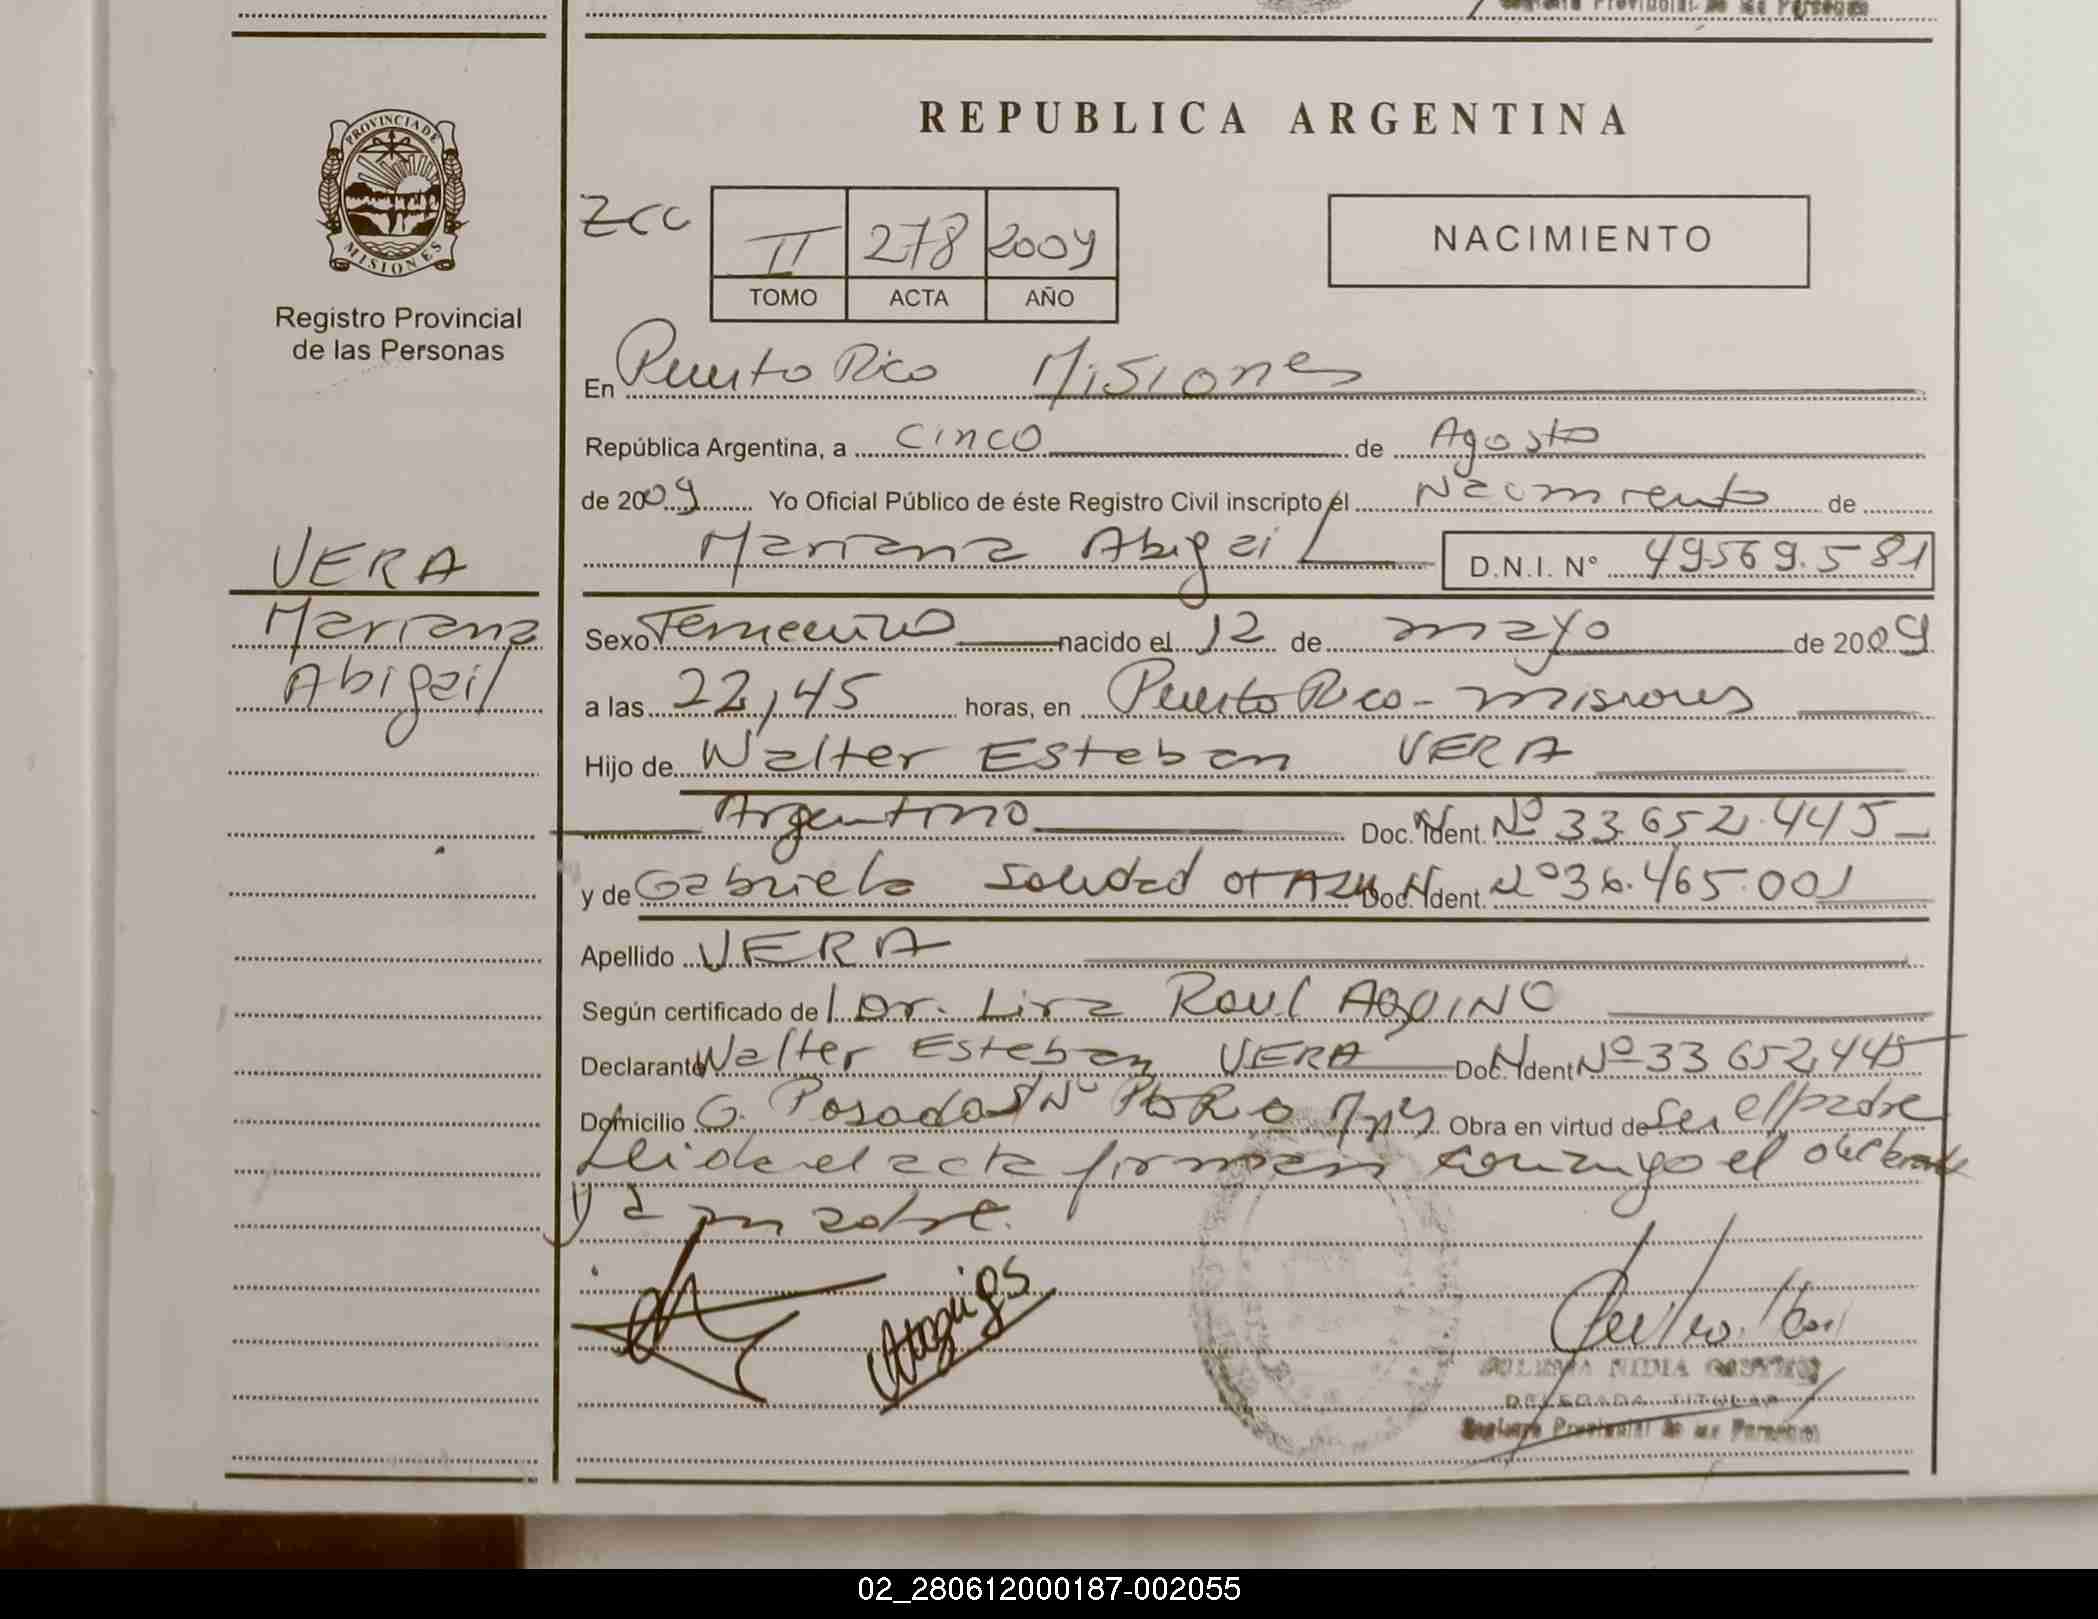 Provincial de las Personas
PROVINCIA DE
MISIONES
Registro Provincial
de las Personas
REPUBLICA ARGENTINA
II 278 2009
TOMO ACTA AÑO
NACIMIENTO
En Puerto Rico Misiones
República Argentina, a cinco de Agosto
de 2009 Yo Oficial Público de éste Registro Civil inscripto el Nacimiento de
Mariana Abigail D.N.I. Nº 49569.581
VERA
Mariana
Abigail
Sexo Femenino nacido el 12 de mayo de 2009
a las 22,45 horas, en Puerto Rico - misiones
Hijo de Walter Esteban VERA
Argentino Doc. Ident. Nº 33.652.445
y de Gabriela Soledad OTAZU Doc. Ident. Nº 36.465.001
Apellido VERA
Según certificado del Dr. Lira Raul AQUINO
Declarante Walter Esteban VERA Doc. Ident Nº 33 652,445
Domicilio G. Posadas S/Nº Pto Rico Mnes Obra en virtud de ser el padre
Leida el acta firman conmigo el declarante
y la madre.
DELEGADA TITULAR
Registro Provincial de las Personas
02_280612000187-002055